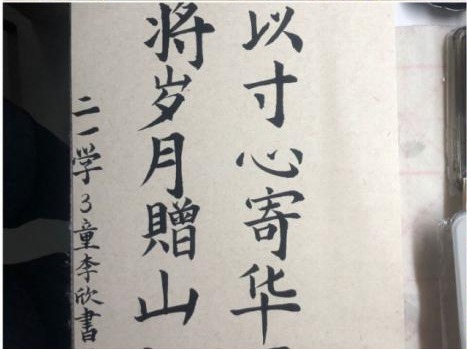 以寸心寄华
将岁月赠山
二一学3童李欣書